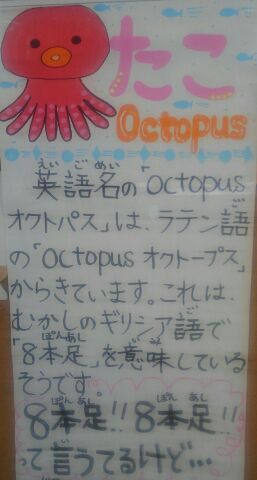 たこ
Octopus
英語名の「Octopus
えいごめい
オクトパス」は、ラテン語
ご
の「Octopus オクトープス」
からきています。これは、
むかしのギリシア語で
ご
「8本足」を意味している
ぽんあし いみ
そうです。
8本足!! 8本足!!
ぽんあし ぽんあし
って言うてるけど…
い